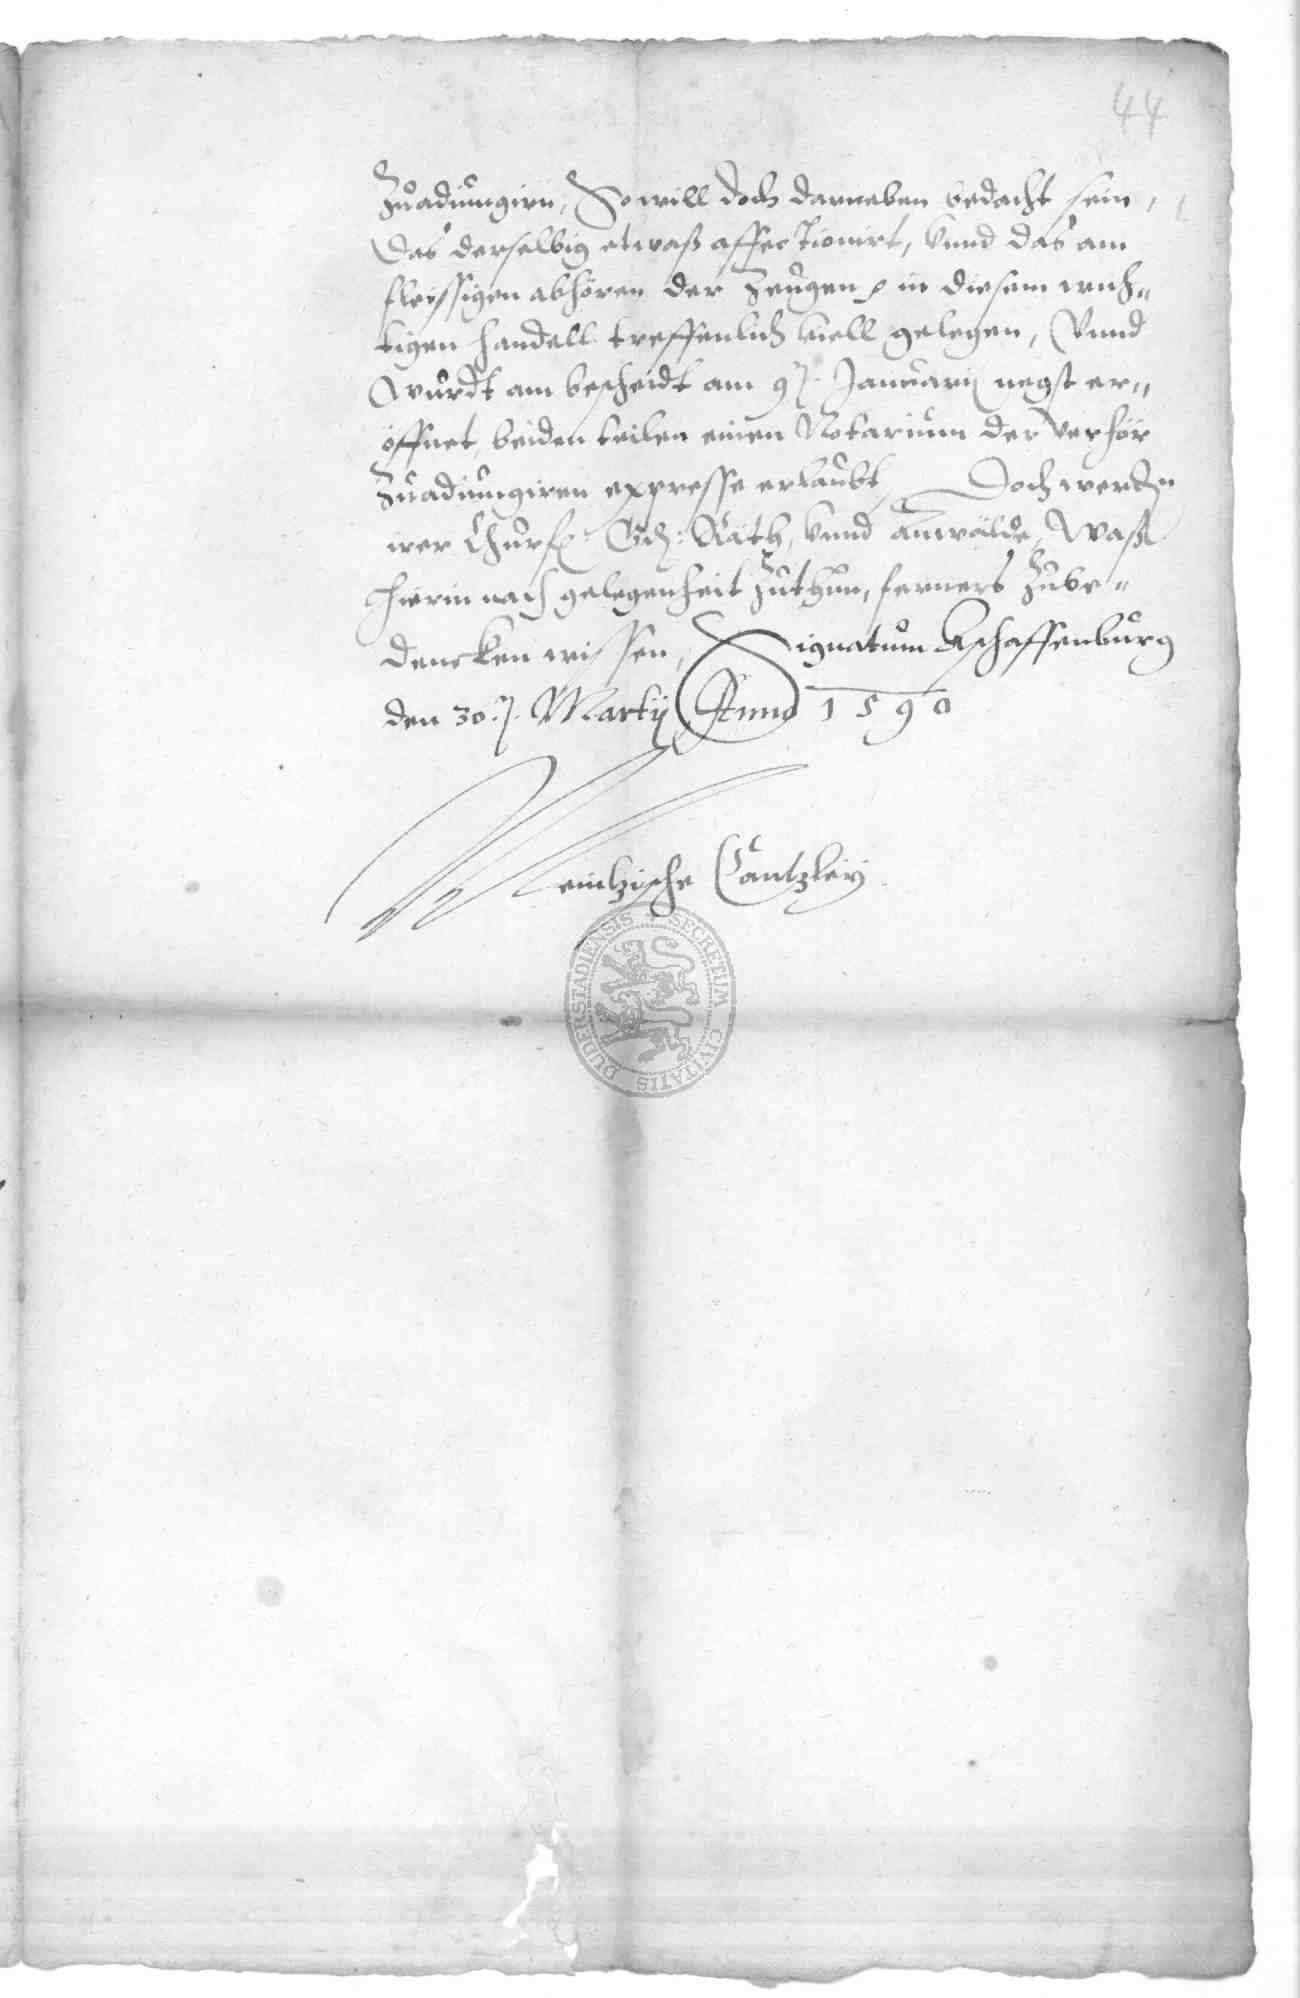 44
Zuadiungirn, So will doch darneben bedacht sein,
das derselbig etwaß affectionirt, vnnd das am
fleissigen abhören der Zeugen in diesem wich-
tigen handell treffenlich viell gelegen, Vnnd
Wurdt am bescheidt am 9. Januarij negst er-
öffnet, beiden teilen einen Notarium der verhör
Zuadiungiren expresse erlaubt, Doch werden
ire Churf. Räth, vnnd Anwälde, Waß
hierin nach gelegenheit Zuthun, ferners Zube-
dencken wissen, Signatum Aschaffenburg
den 30. Martij Anno 1590
Meintzische Cantzley
SECRETUM CIVITATIS DUDERSTADIENSIS